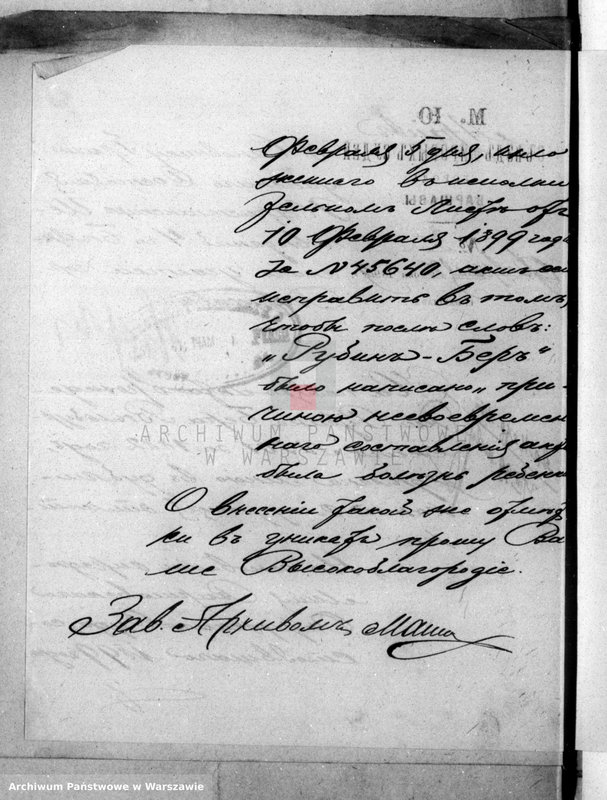 М. Ю.
Февраля 5 дня, изло
женнаго въ исполни
тельномъ Листѣ отъ
10 Февраля 1899 года
за N 45640, актъ
исправить въ томъ,
чтобы послѣ словъ:
„Рубинъ-Беръ“
было написано „при-
чиною несвоевремен
наго составленія ак
была болѣзнь ребенка
О внесеніи такой же отмѣт
ки въ уникатъ прошу Ва
ше Высокоблагородіе.
Зав. Архивомъ
ARCHIWUM PAŃSTWOWE
W WARSZAWIE
Archiwum Państwowe w Warszawie